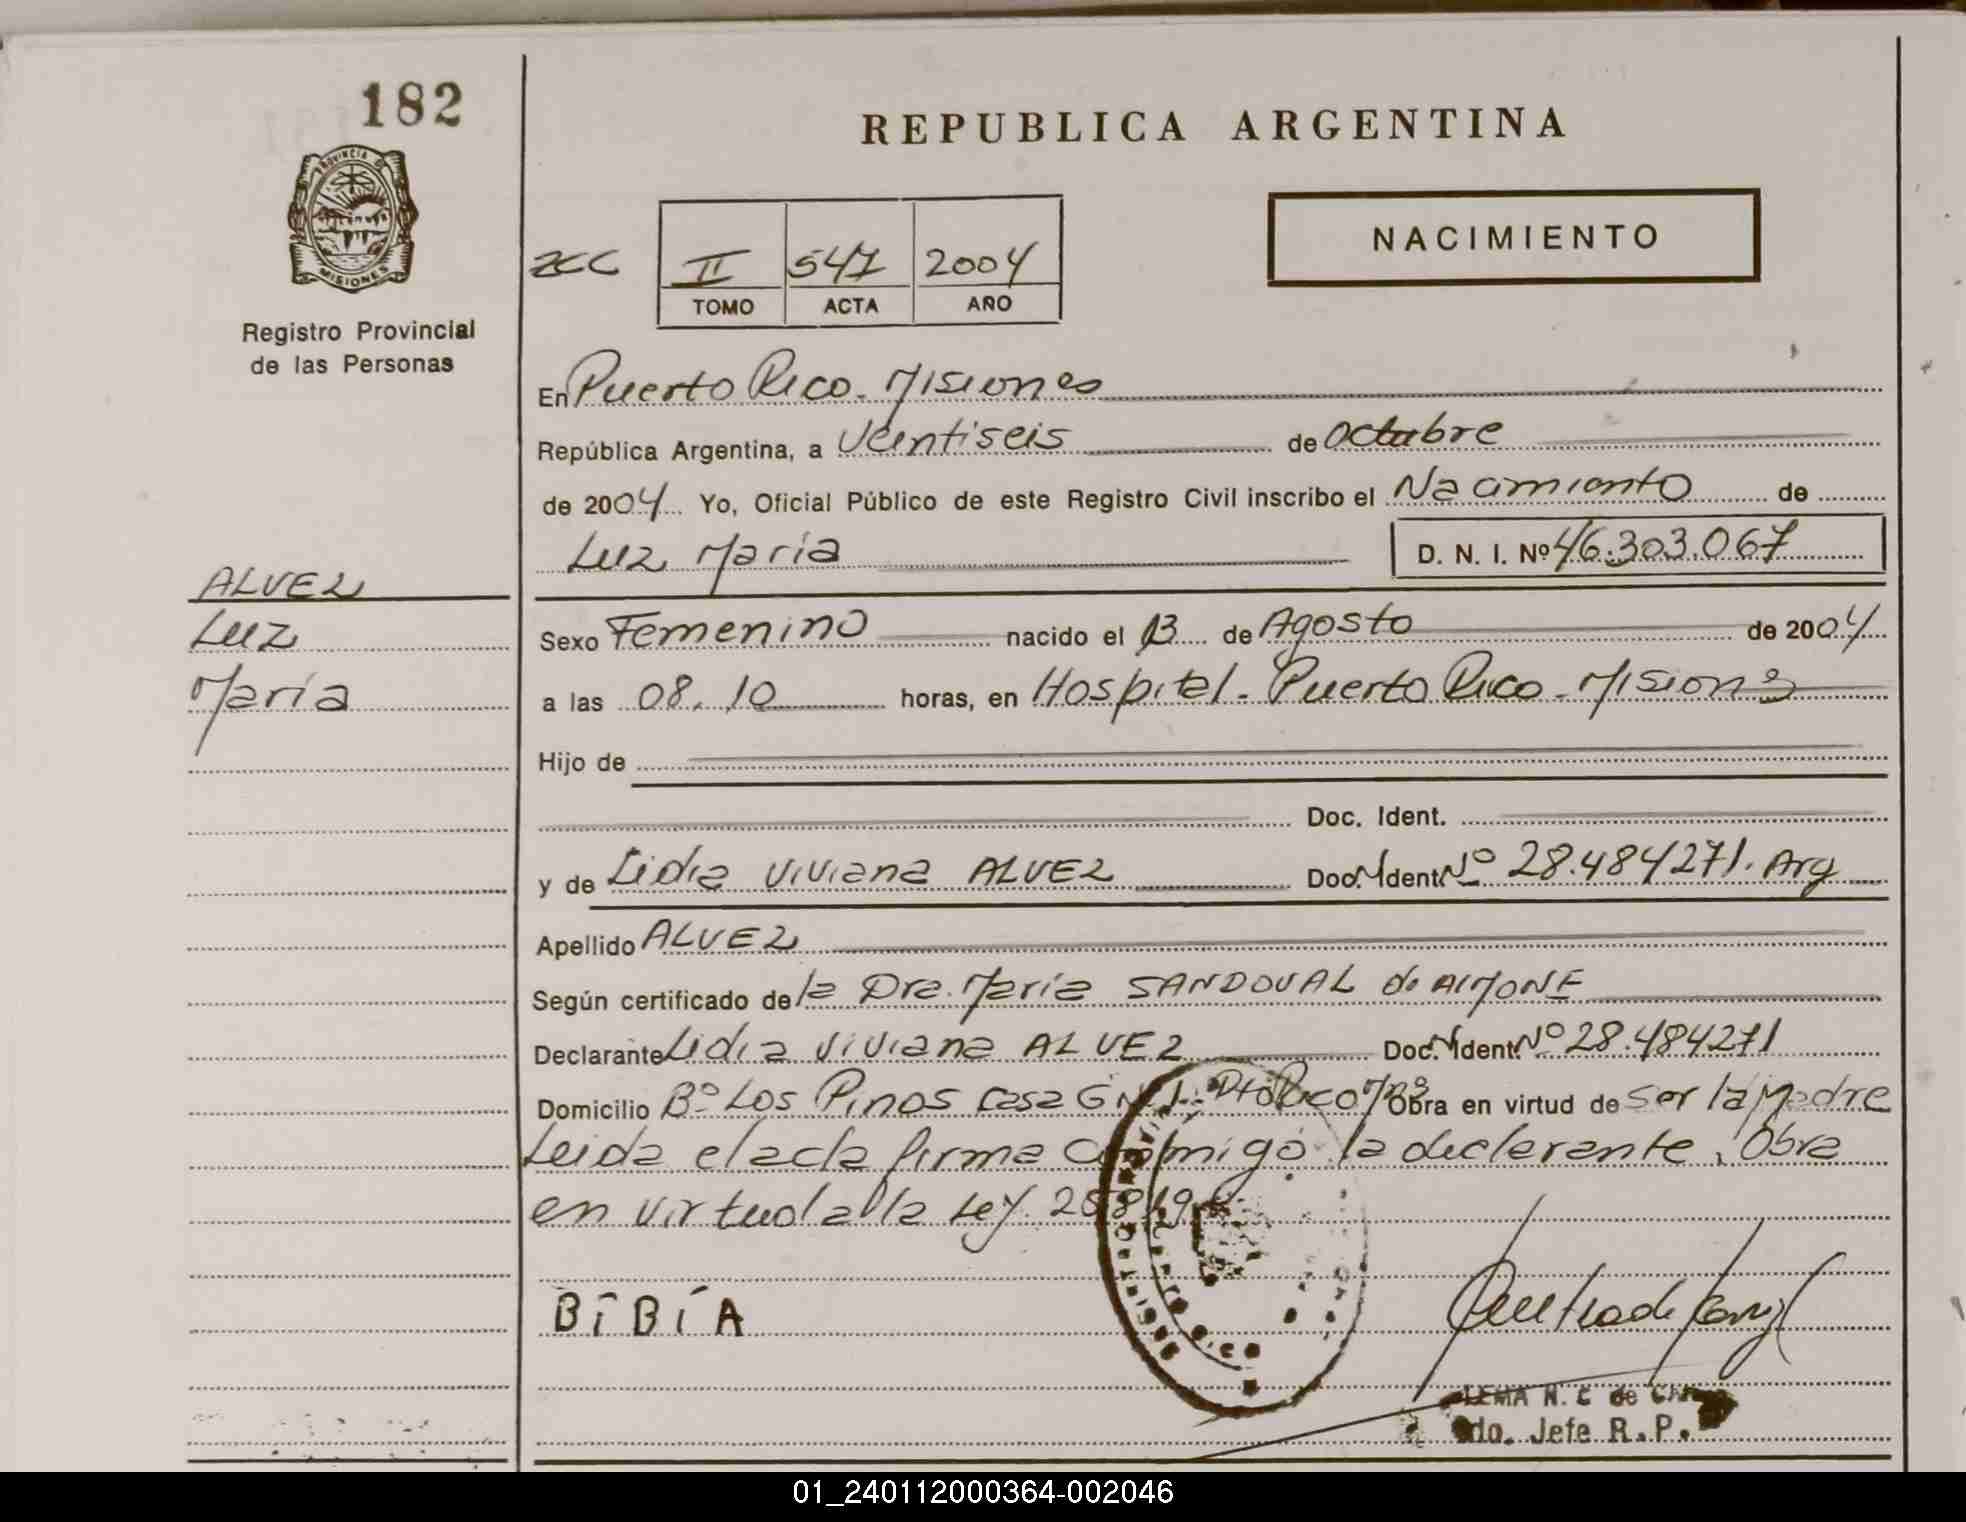 182
REPUBLICA ARGENTINA
PROVINCIA DE
MISIONES
Registro Provincial
de las Personas
NACIMIENTO
II 541 2004
TOMO ACTA AÑO
En Puerto Rico. Misiones
República Argentina, a Veintiseis de Octubre
de 2004 Yo, Oficial Público de este Registro Civil inscribo el Nacimiento de
Luz María D. N. I. Nº 46.303.067
ALVEZ
Luz
María
Sexo Femenino nacido el 13 de Agosto de 2004
a las 08.10 horas, en Hospital. Puerto Rico. Misiones
Hijo de
Doc. Ident.
y de Lidia Viviana ALVEZ Doc. Ident. Nº 28.484271. Arg
Apellido ALVEZ
Según certificado de la Dra. María SANDOVAL de AIMONE
Declarante Lidia Viviana ALVEZ Doc. Ident. Nº 28.484271
Domicilio Bº Los Pinos Casa Pto Rico Obra en virtud de Ser la Madre
Leida el acta firma conmigo la declarante. Obra
en virtud a la Ley.
BIBIA
de
do. Jefe R.P.
01_240112000364-002046